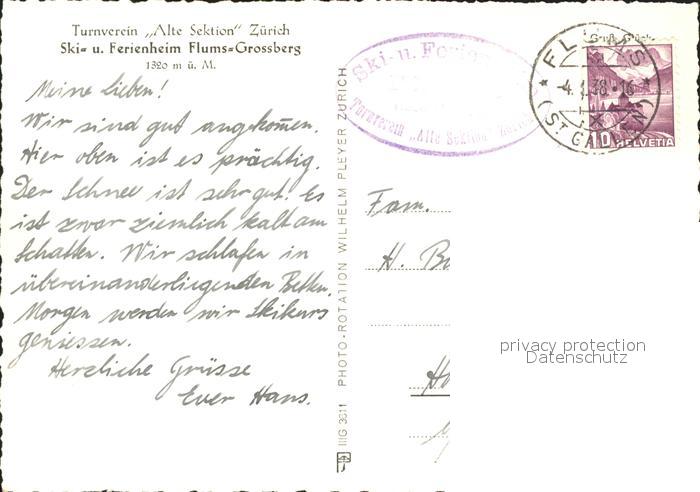 Turnverein „Alte Sektion" Zürich
Ski- u. Ferienheim Flums-Grossberg
1320 m ü. M.
Meine Lieben!
Wir sind gut angekom̄en.
Hier oben ist es prächtig.
Der Schnee ist sehr gut. Es
ist zwar ziemlich kalt am
Schatten. Wir schlafen in
übereinanderliegenden Betten.
Morgen werden wir Skikurs
geniessen.
Herzliche Grüsse
Euer Hans.
IIIG 3611 PHOTO-ROTATION WILHELM PLEYER ZÜRICH
Ski- u. Ferien
Turnverein „Alte Sektion" Zürich
FLUMS
(ST GALLEN)
10 HELVETIA
Fam.
H. B
privacy protection
Datenschutz